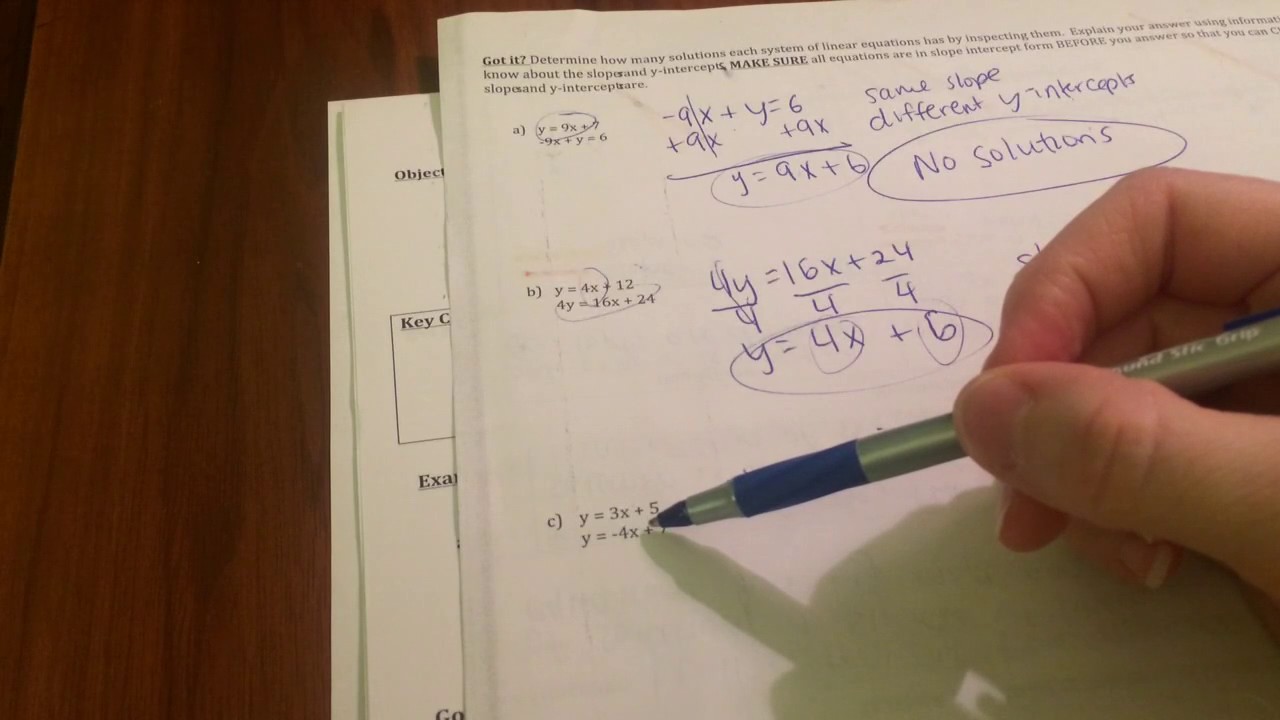 Got it? Determine how many solutions each system of linear equations has by inspecting them. Explain your answer using
know about the slopes and y-intercepts, MAKE SURE all equations are in slope intercept form BEFORE you answer so that you can
slopes and y-intercepts are.
a) y = 9x + 7
-9x + y = 6
-9x + y = 6
+9x +9x
y = 9x + 6
same slope
different y-intercepts
No solutions
Object
b) y = 4x + 12
4y = 16x + 24
4y = 16x + 24
4 4 4
y = 4x + 6
Key C
Exa
c) y = 3x + 5
y = -4x +
Go
Round Stic Grip